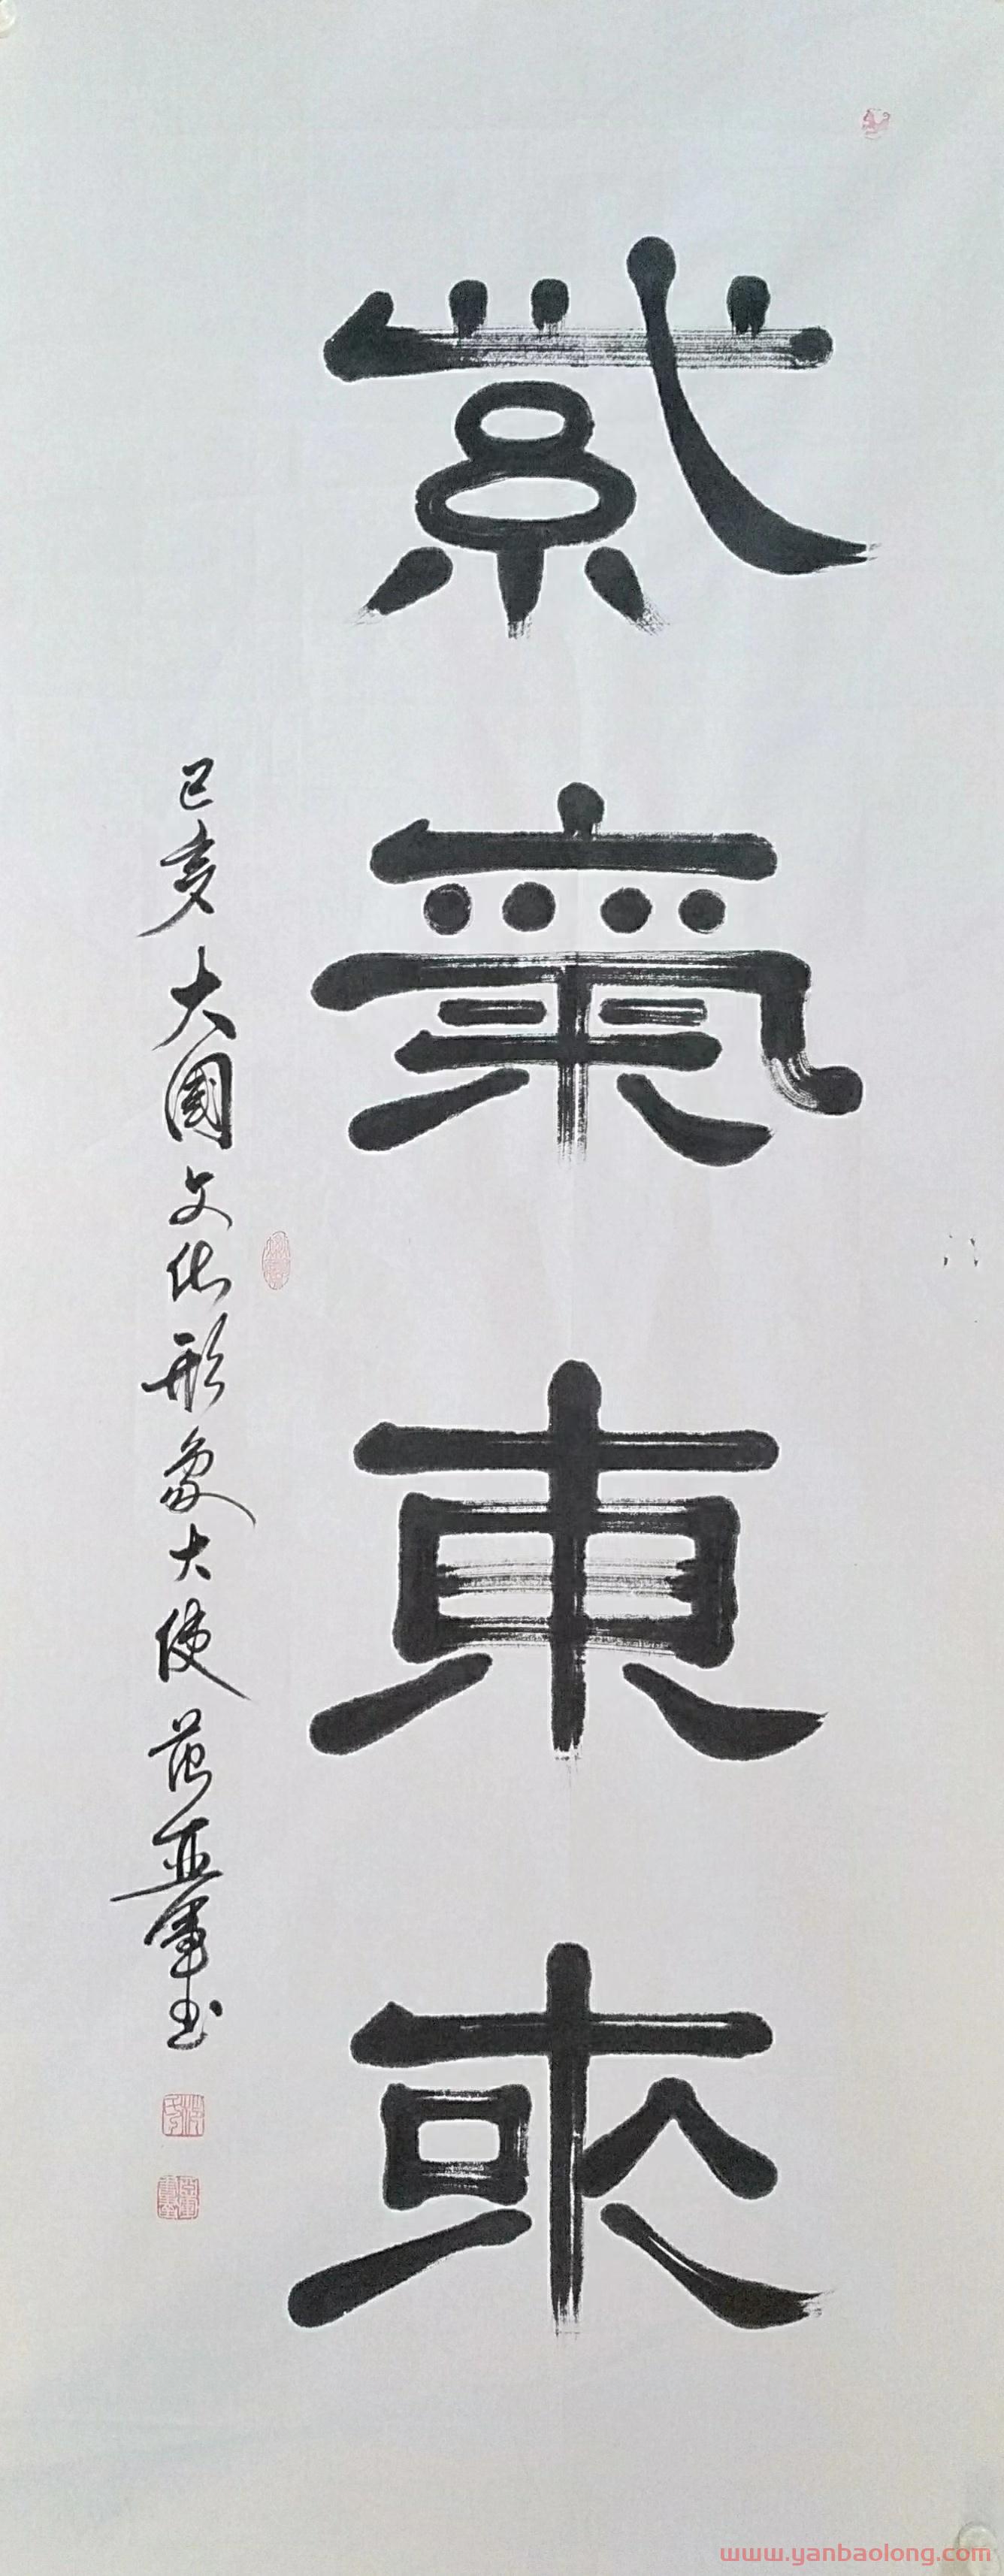 紫氣東來
己亥大國文化形象大使范亞軍书
www.yanbaolong.com